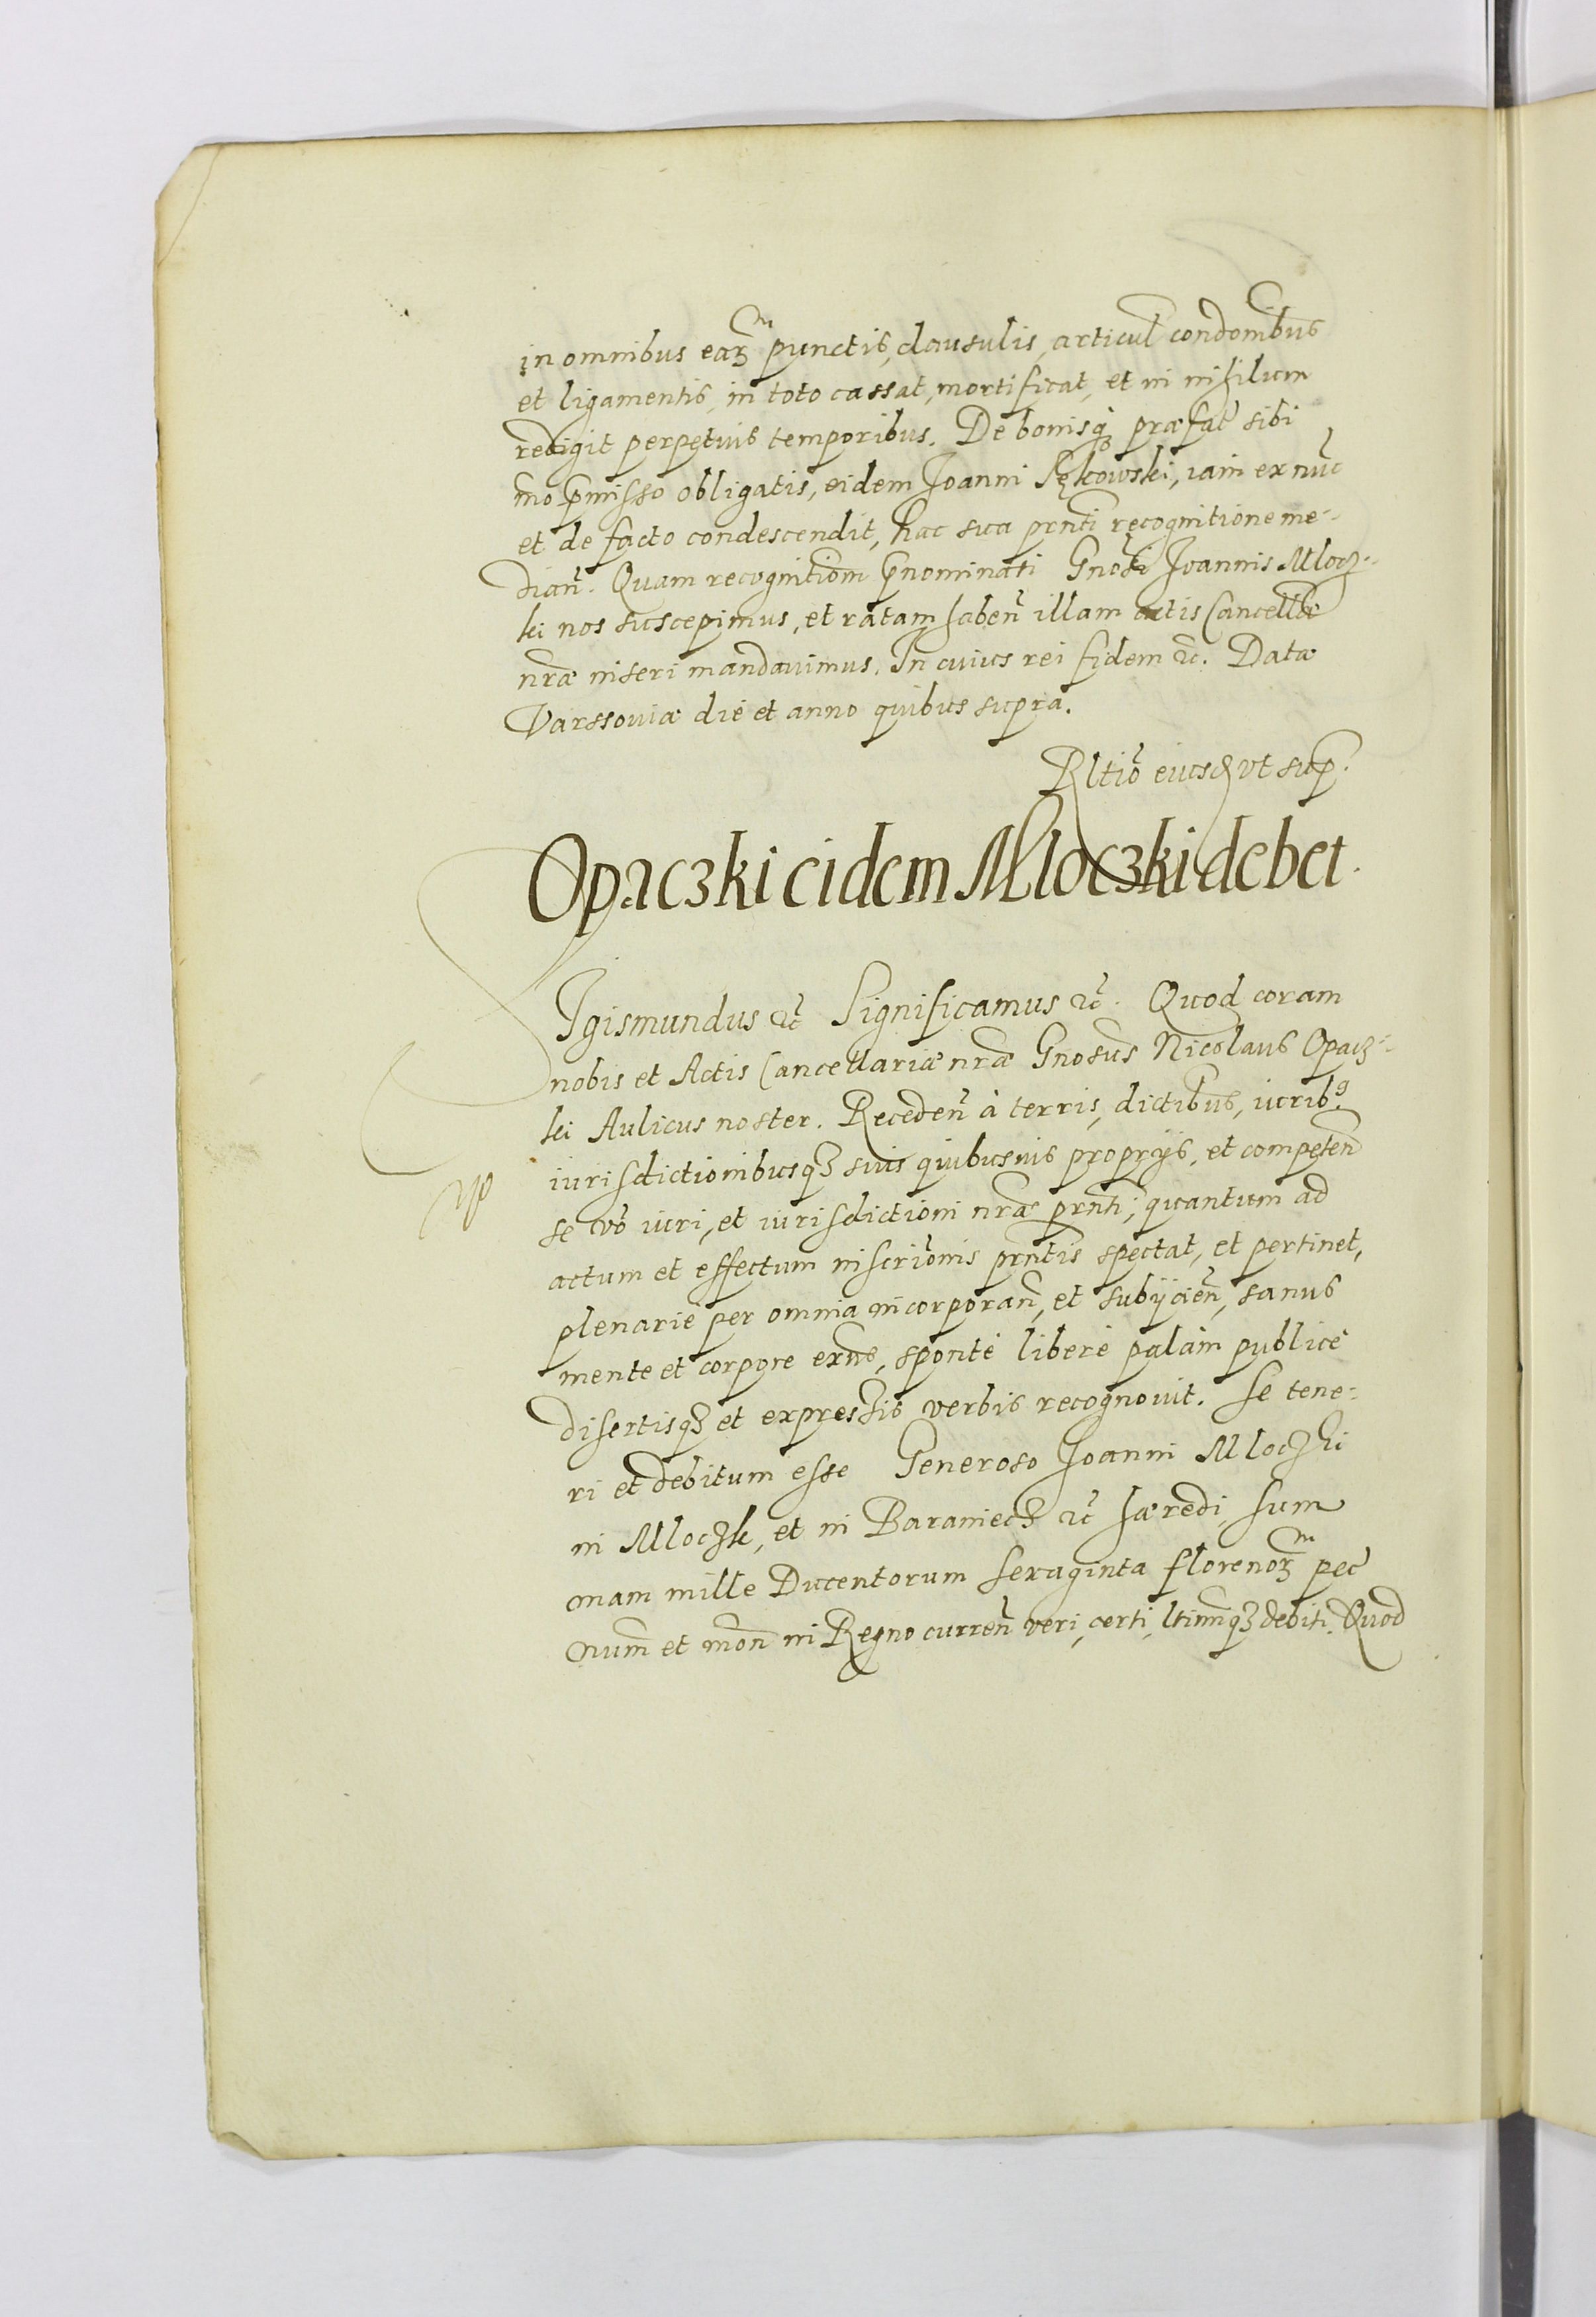 in omnibus earꝫ m punctis, clausulis, articul condonibus
et ligamentis, in toto cassat, mortificat, et in nihilum
redigit perpetuis temporibus. De bonisqꝫ præfat sibi
mo pmisso obligatis, eidem Joanni Sękowski, iam ex nuc
et de facto condescendit, hac sua prnti recognitione me-
dian. Quam recognitiom pnominati Gnosi Joannis Mlocz-
ki nos suscepimus, et ratam haben illam actis Cancellæ
nræ inseri mandauimus. In cuius rei fidem ꝛc. Datæ
Varssouiæ die et anno quibus supra.
Rltio eiusd vt sup.
Opaczki eidem Mloczki debet.
SJgismundus ꝛc Significamus ꝛc. Quod coram
nobis et Actis Cancellariæ nræ Gnosus Nicolaus Opacz-
ki Aulicus noster. Receden à terris, dictibus, iurib9
iurisdictionibusqꝫ suis quibusuis proprijs, et competen
se vo iuri, et iurisdictioni nræ prnti, quantum ad
actum et effectum inscrionis prntis spectat, et pertinet,
plenarie per omnia incorporan, et subijcien, sanus
mente et corpore exns, sponte libere palam publice
disertisqꝫ et expressis verbis recognouit. Se tene-
ri et debitum esse Generoso Joanni Mloczki
in Mloczk, et in Baraniecz ꝛc hæredi, sum
mam mille Ducentorum sexaginta florenorꝫ m pec
num et mon in Regno curren veri, certi, ltimiqꝫ debiti. Quod